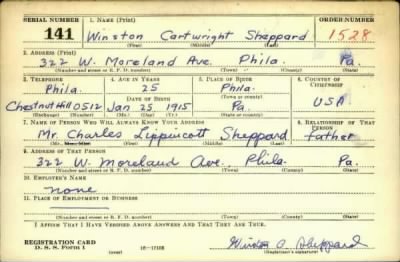 SERIAL NUMBER 1. NAME (Print) ORDER NUMBER
141 Winston Cartwright Sheppard 1528
(First) (Middle) (Last)
2. ADDRESS (Print)
322 W. Moreland Ave. Phila. Pa.
(Number and street or R. F. D. number) (Town) (County) (State)
3. TELEPHONE 4. AGE IN YEARS 5. PLACE OF BIRTH 6. COUNTRY OF CITIZENSHIP
Phila. 25 Phila.
DATE OF BIRTH (Town or county)
Chestnut Hill 0512 Jan 25 1915 Pa. USA
(Exchange) (Number) (Mo.) (Day) (Yr.) (State or country)
7. NAME OF PERSON WHO WILL ALWAYS KNOW YOUR ADDRESS 8. RELATIONSHIP OF THAT PERSON
Mr. Charles Lippincott Sheppard father
(Mr., Mrs., Miss) (First) (Middle) (Last)
9. ADDRESS OF THAT PERSON
322 W. Moreland Ave. Phila. Pa.
(Number and street or R. F. D. number) (Town) (County) (State)
10. EMPLOYER'S NAME
none
11. PLACE OF EMPLOYMENT OR BUSINESS
(Number and street or R. F. D. number) (Town) (County) (State)
I AFFIRM THAT I HAVE VERIFIED ABOVE ANSWERS AND THAT THEY ARE TRUE.
REGISTRATION CARD
D. S. S. Form 1 16-17105 Winston C. Sheppard
(Registrant's signature)